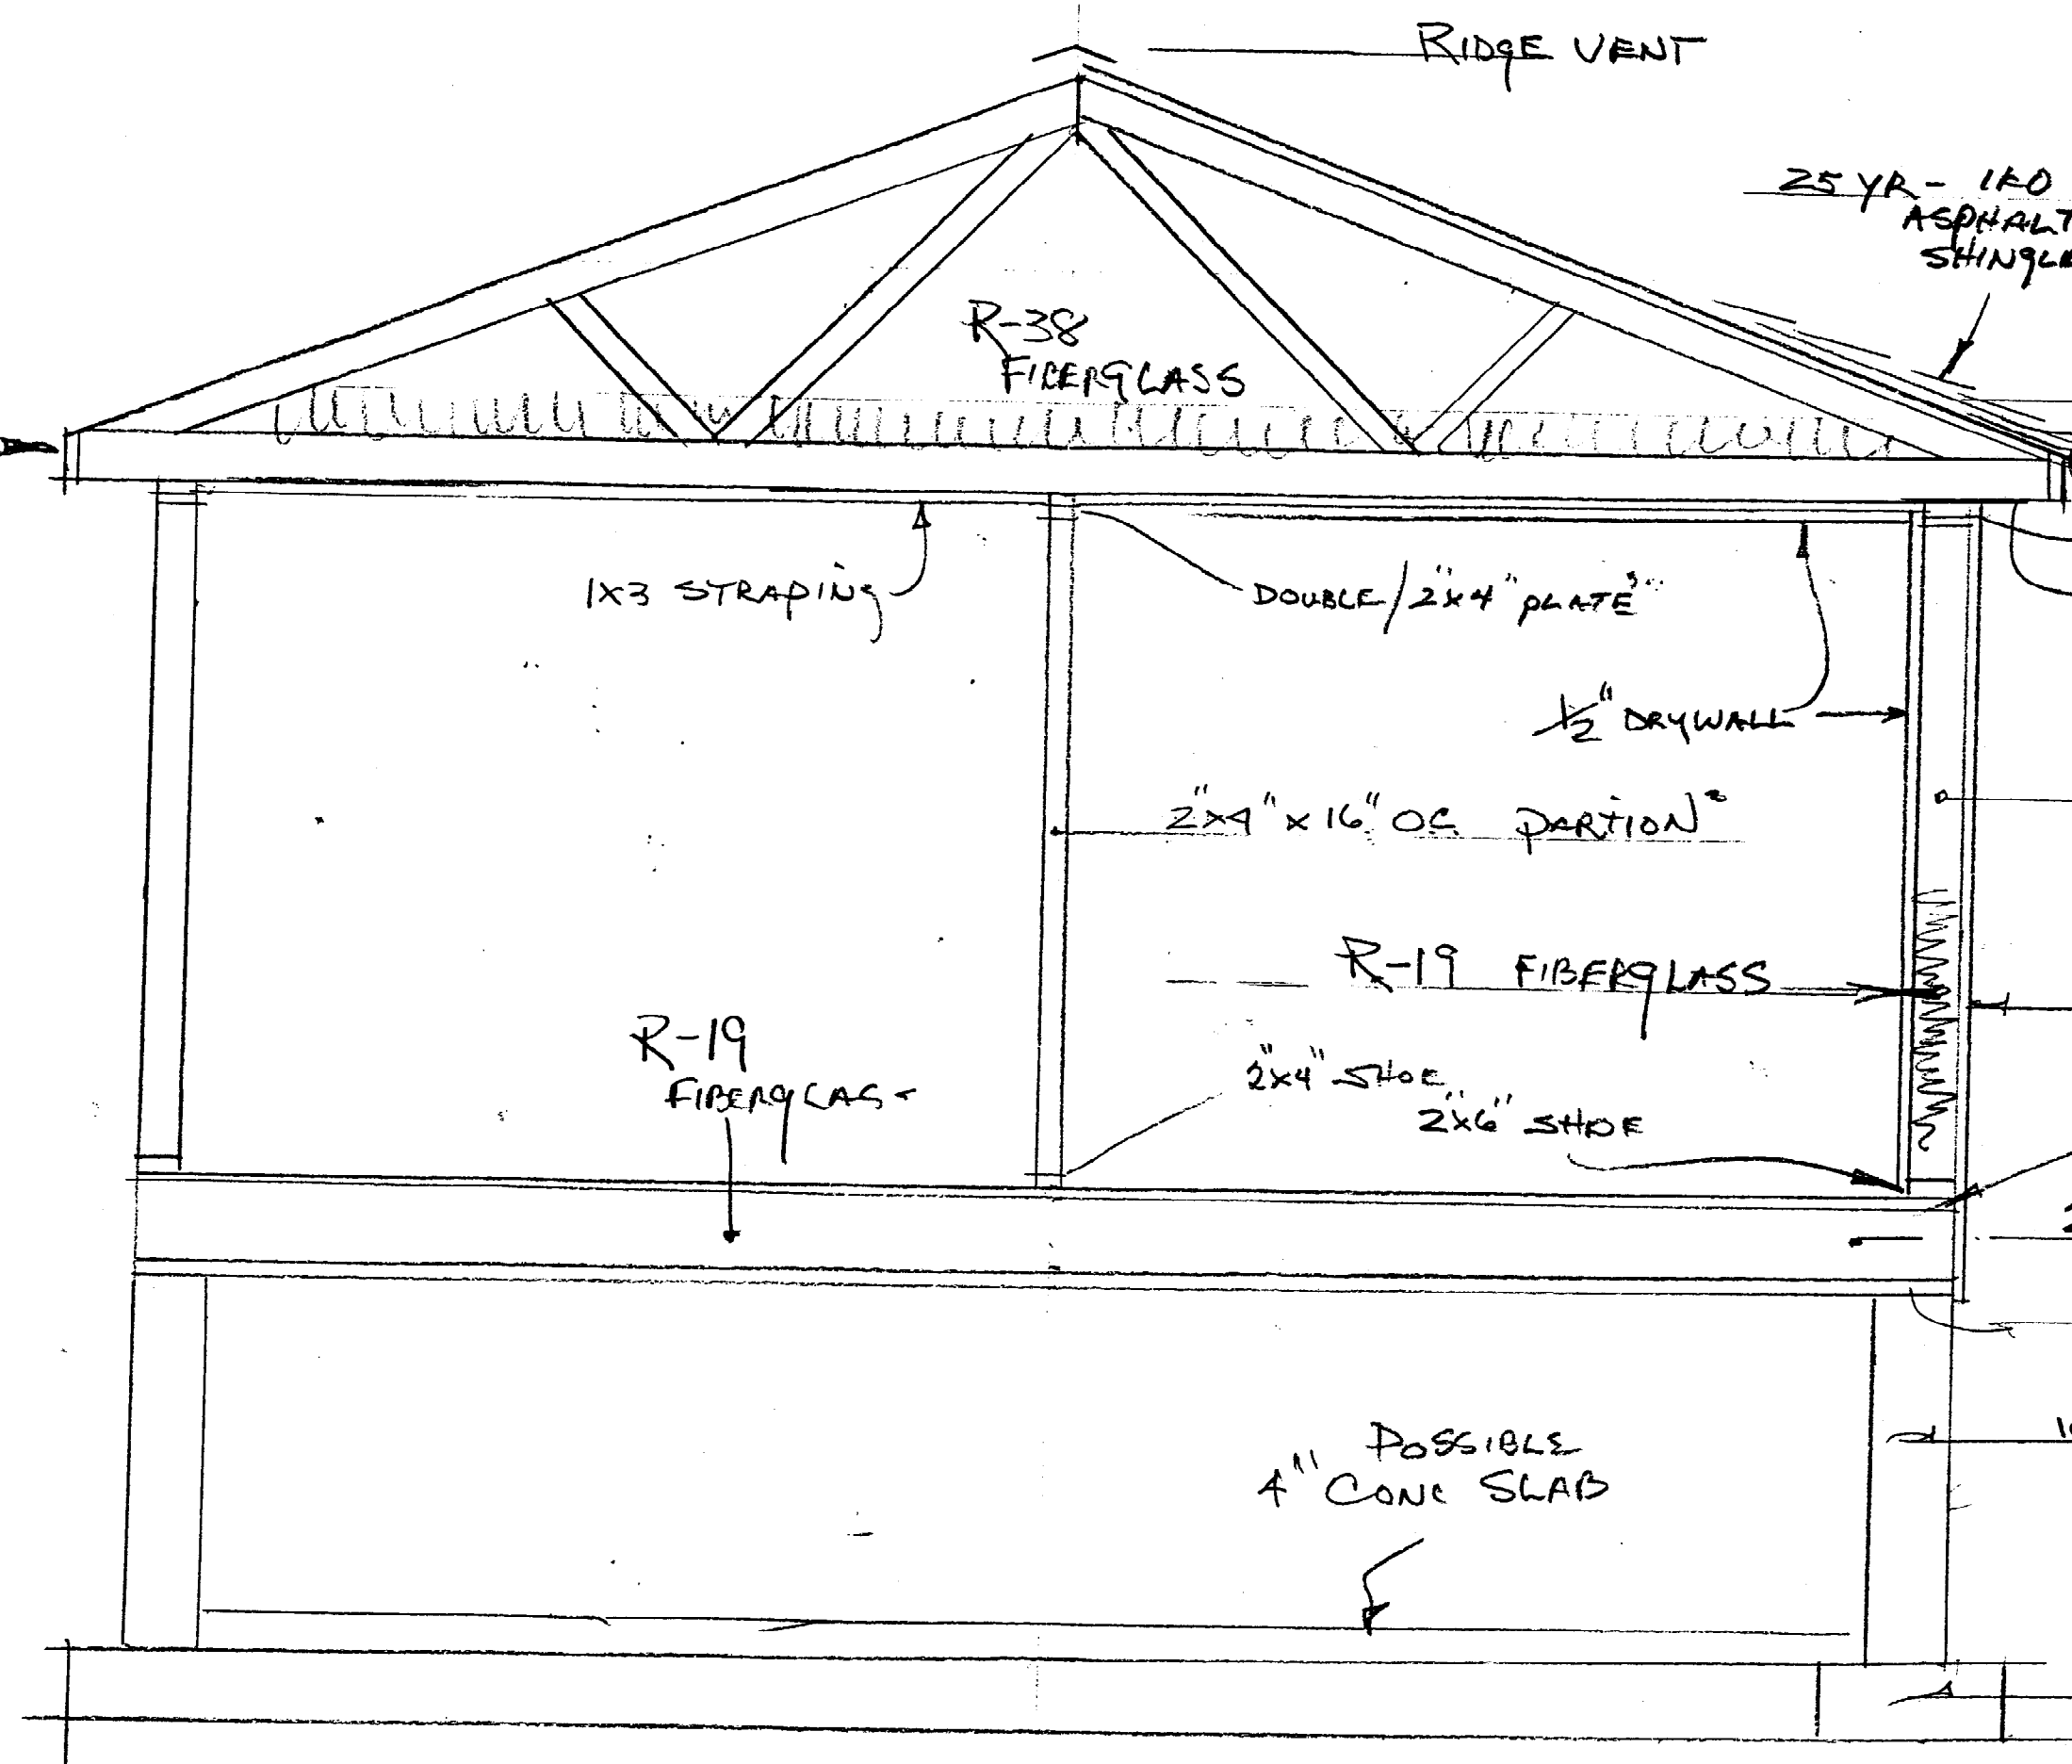 RIDGE VENT
25 YR - IKO
ASPHALT
SHINGLE
R-38
FIBERGLASS
1X3 STRAPING
DOUBLE/2"X4" PLATE'S
1/2" DRYWALL
2"X4" X 16" OC PARTION
R-19 FIBERGLASS
R-19
FIBERGLAS
2"X4" SHOE
2"X6" SHOE
POSSIBLE
4" CONC SLAB